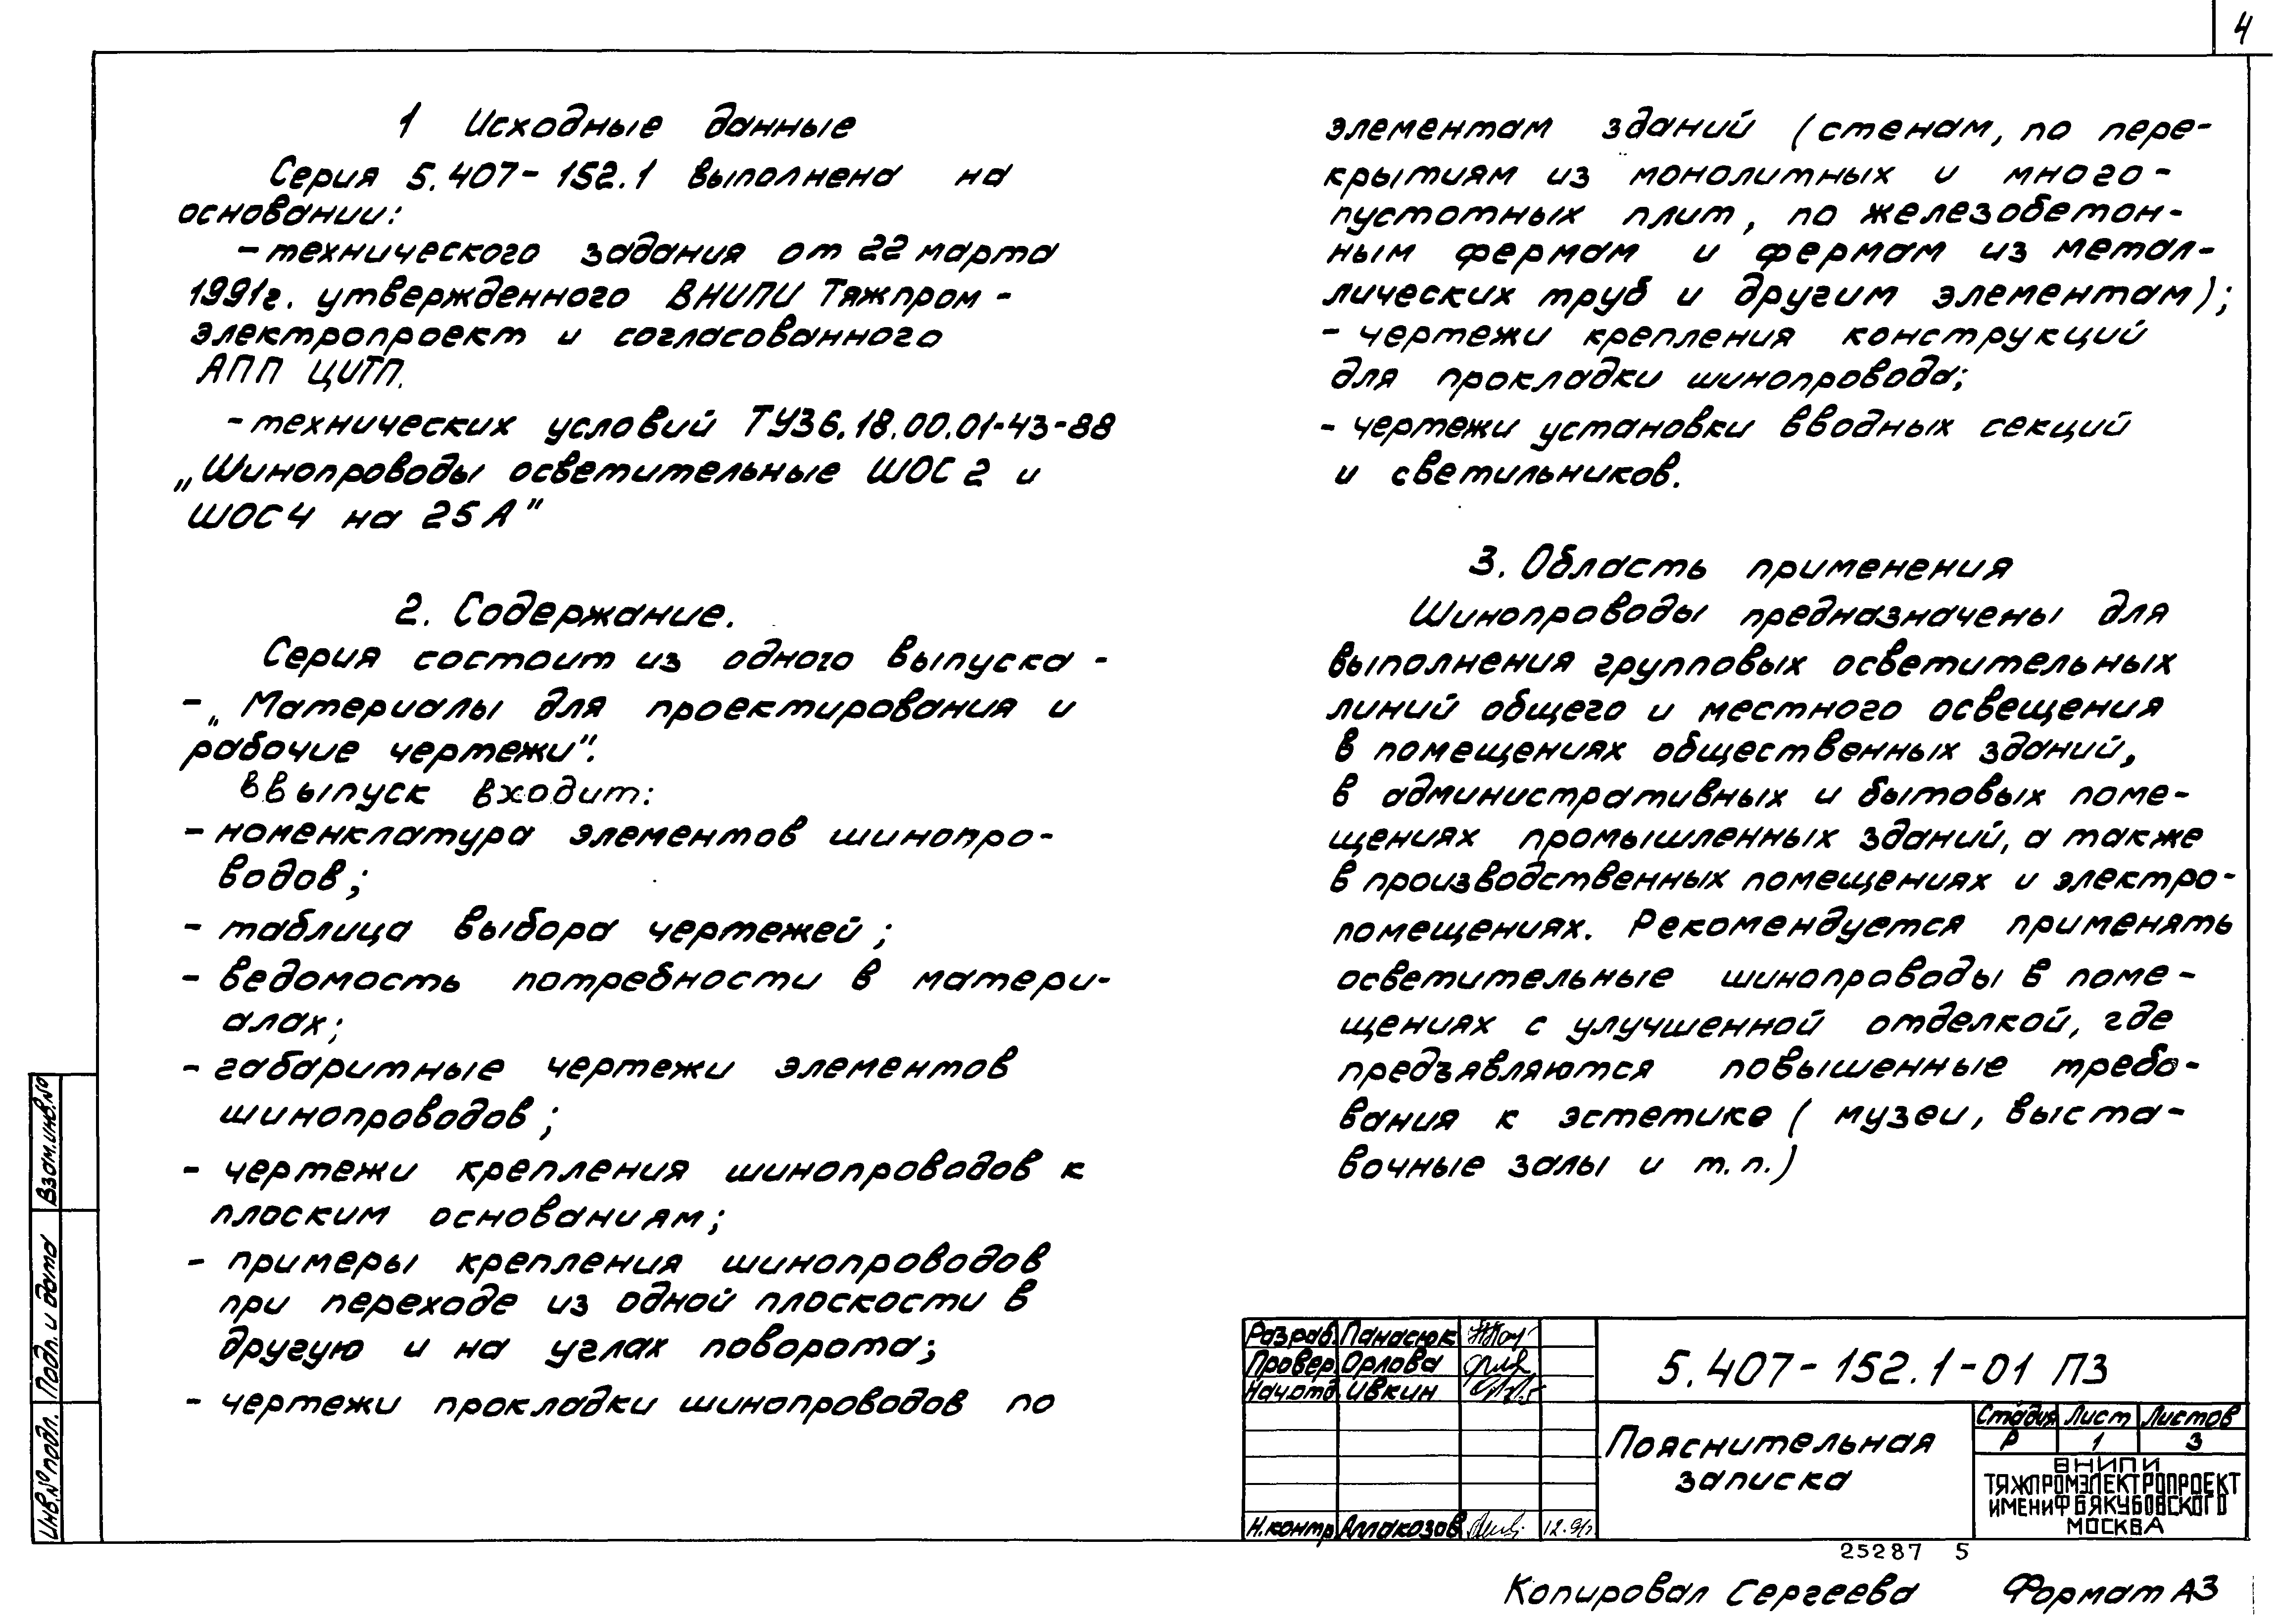 4
1 Исходные данные
Серия 5.407-152.1 выполнена на
основании:
- технического задания от 22 марта
1991г. утвержденного ВНИПИ Тяжпром-
электропроект и согласованного
АПП ЦИТП.
- технических условий ТУ36.18.00.01-43-88
„Шинопроводы осветительные ШОС 2 и
ШОС4 на 25А"
2. Содержание.
Серия состоит из одного выпуска -
- „Материалы для проектирования и
рабочие чертежи".
В выпуск входит:
- номенклатура элементов шинопро-
водов;
- таблица выбора чертежей;
- ведомость потребности в матери-
алах;
- габаритные чертежи элементов
шинопроводов;
- чертежи крепления шинопроводов к
плоским основаниям;
- примеры крепления шинопроводов
при переходе из одной плоскости в
другую и на углах поворота;
- чертежи прокладки шинопроводов по
элементам зданий (стенам, по пере-
крытиям из монолитных и много-
пустотных плит, по железобетон-
ным фермам и фермам из метал-
лических труб и другим элементам);
- чертежи крепления конструкций
для прокладки шинопровода;
- чертежи установки вводных секций
и светильников.
3. Область применения
Шинопроводы предназначены для
выполнения групповых осветительных
линий общего и местного освещения
в помещениях общественных зданий,
в административных и бытовых поме-
щениях промышленных зданий, а также
в производственных помещениях и электро-
помещениях. Рекомендуется применять
осветительные шинопроводы в поме-
щениях с улучшенной отделкой, где
предъявляются повышенные требо-
вания к эстетике (музеи, выста-
вочные залы и т.п.)
Взам.инв.№
Подп. и дата
Инв.№ подл.
Разраб. Панасюк
Провер. Орлова
Нач.отд. Ивкин
Н.контр. Аллакозов 12.91г
5.407-152.1-01 ПЗ
Пояснительная
записка
Стадия Лист Листов
Р 1 3
ВНИПИ
ТЯЖПРОМЭЛЕКТРОПРОЕКТ
ИМЕНИ Ф Б ЯКУБОВСКОГО
МОСКВА
25287 5
Копировал Сергеева Формат А3